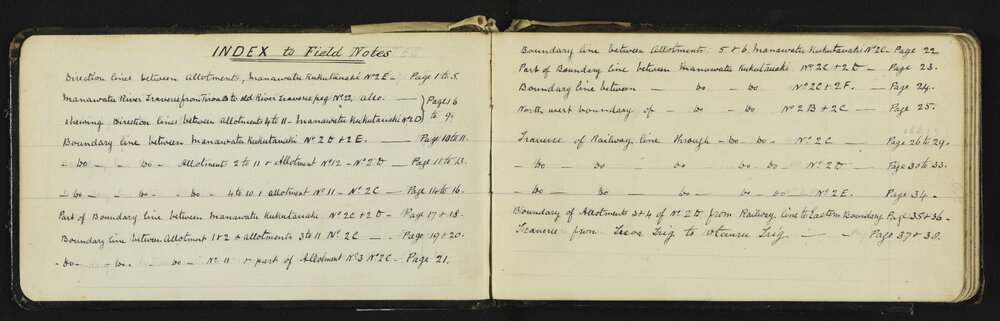 INDEX to Field Notes
Direction lines between Allotments, Manawatu Kukutauaki No 2E - Page 1 to 5.
Manawatu River Traverse from Tiroa to old River Traverse peg No 22, also. - Page 6
shewing Direction lines between allotments 4 to 11 - Manawatu Kukutauaki No 2D to 9
Boundary line between Manawatu Kukutauaki No 2D + 2E. - Page 10 to 11.
- Do - Do - Allotment 2 to 11 + Allotment No 12 - No 2D - Page 11 to 13.
- Do - Do - Do - 4 to 10 + allotment No 11 - No 2C - Page 14 to 16.
Part of Boundary line between Manawatu Kukutauaki No 2C + 2D - Page 17 + 18.
Boundary line between Allotment 1 + 2 + allotments 3 to 11 No 2C - Page 19 + 20.
- Do - Do - Do - No 11 + part of Allotment No 3 No 2C - Page 21.
Boundary line between allotments 5 + 6, Manawatu Kukutauaki No 2C - Page 22
Part of Boundary line between Manawatu Kukutauaki No 2C + 2D - Page 23.
Boundary line between - Do - Do No 2C + 2F. - Page 24.
North west boundary of - Do - Do No 2B + 2C - Page 25.
Traverse of Railway line through - Do - Do No 2C - Page 26 to 29.
- Do - Do - Do - Do - Do No 2D - Page 30 to 33.
- Do - Do - Do - Do No 2E. Page 34 -
Boundary of Allotments 3 + 4 of No 2D from Railway line to Eastern Boundary Page 35 + 36 -
Traverse from Trig to Trig - Page 37 + 38.